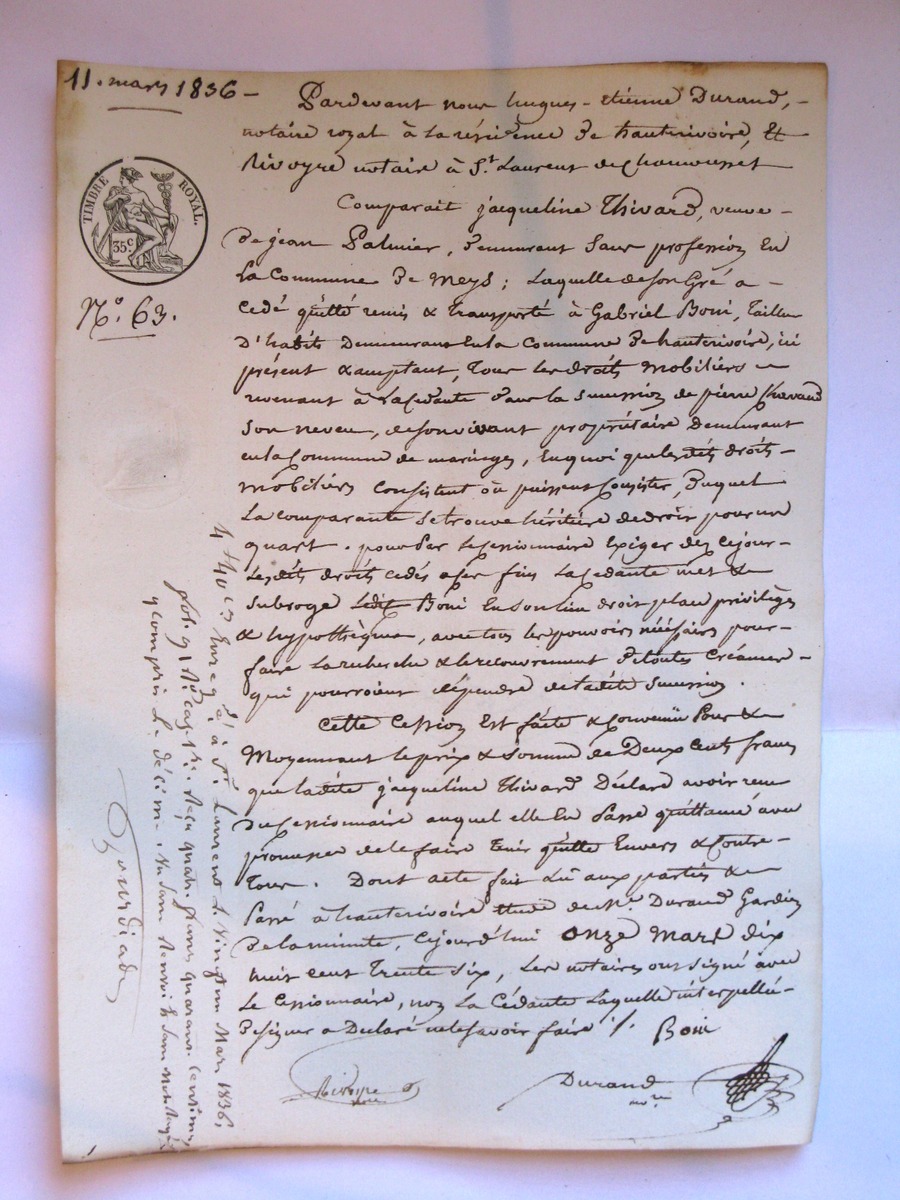 11. mars 1836 -
TIMBRE ROYAL.
35c.
No. 63.
Pardevant nous hugues - etiénne Durand, -
notaire royal à la résidence De hauterivoire, Et
Rivoyre notaire à St. Laurent de Chamousset
Comparait jacqueline Thivard, veuve -
De jéan Palmier, Demeurant Sans profession En
La Commune De Meys; Laquelle de son Gré a -
Cedé quitté remis & Transporté à Gabriel Boni, Tailleur
D'habits Demeurant En la Commune De hauterivoire, ici
présent & acceptant, Tous les droits mobiliers
revenant à la Cédante dans la Succession de pierre
Son neveu, de son vivant propriétaire Demeurant
en la Commune de , En quoi que lesdits droits -
Mobiliers Consistent où puissent Consister, Duquel
La comparante se trouve héritière de droit pour un
quart. pour Par le Cessionnaire Exiger dez ce jour -
Lesdits droits cédés a ces fins La Cedante met &
Subroge Ledit Boni En son Lieu droit place privilèges
& hypothèques, avec tous les pouvoirs nécéssaires pour -
faire La recherche & le recouvrement De toutes Créances -
qui pourroient dépendre de ladite Succession.
Cette Cession Est faite & Convenüe Pour &
Moyennant le prix & Somme de Deux Cents francs
que ladite jacqueline Thivard Déclare avoir reçu
du Cessionnaire auquel elle En Passe quittance avec
promesse de le faire Tenir quitte Envers & Contre -
Tous. Dont acte fait & Lü aux parties &
Passé à hauterivoire Etude de Me. Durand Gardien
De la minute, Cejourd'hui Onze Mars Dix
huit cent Trente Six, Les notaires ont signé avec
Le Cessionnaire, non La Cédante Laquelle interpellée -
De signer a Declaré ne le savoir faire ./. Boni
Rivoyre nre
Durand nre
Enregé. à St Laurent le Vingt un Mars 1836,
fol. 91 Ro. cas Reçu quatre francs quarante centimes,
y compris le décime. un sans renvoi & sans mot rayé